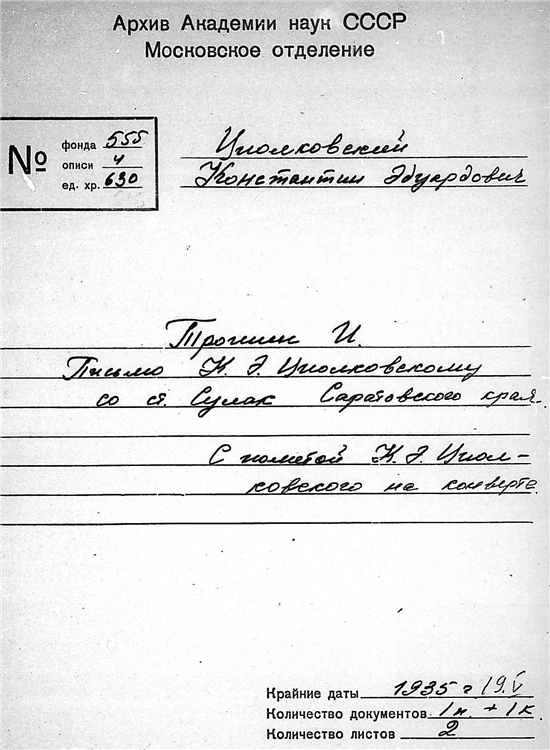 Архив Академии наук СССР
Московское отделение
№
фонда 555
описи 4
ед. хр. 630
Циолковский
Константин Эдуардович
Трошин И.
Письмо К. Э. Циолковскому
со ст. Сулак Саратовского края.
С пометой К. Э. Циол-
ковского на конверте.
Крайние даты 1935 г 19.V
Количество документов 1п. + 1к.
Количество листов 2